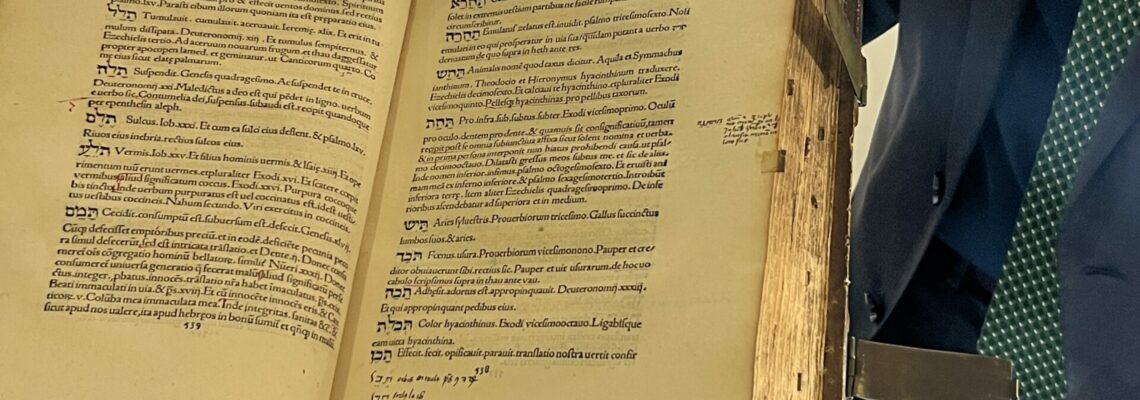 psalmo.lxv. Parasti cibum illorum quoniam ita est præparatio eius.
Tumulauit. cumulauit. aceruauit. Ieremię. xlix. Et erit in tu
mulum dissipata. Deuteronomij. xiij. Et tumulus sempiternus. &
Ezechielis tertio. Ad aceruum nouarum frugum. et thau daggessatur
propter apocopen lamed. et geminatur. ut Canticorum quarto. Co
mę eius sicut elatę palmarum.
תלה Suspendit. Genesis quadragesimo. Ac suspendet te in cruce.
Deuteronomij.xxi. Maledictus a deo est qui pēdet in ligno. uerbum
e uerbo sic. Contumelia dei, suspensus. subaudi est. recipit quandoque
per epenthesin aleph.
תלם Sulcus. Iob.xxxi. Et cum ea sulci eius deflent. & psalmo.lxv.
Riuos eius inebria. rectius sulcos eius.
תלע Vermis. Iob.xxv. Et filius hominis uermis. & Isaię.xiiij. Et ope
rimentum tuū erunt uermes. et pluraliter Exodi.xvi. Et scatere cœpit
uermibus. aliud significatum coccus. Exodi.xxvi. Purpura coccoque
bis tincto. Inde uerbum purpuratus est uel coccinatus est. idest uesti
tus uestibus coccineis. Nahum secundo. Viri exercitus in coccineis.
תמם Cecidit. consumptū est. subuersum est. defecit. Genesis.xlvij.
Cūq̃ defecisset emptoribus precium. et in eodē. deficiēte pecunia pec
ra simul defecerūt. sed est intricata trāslatio. et Deute.ij. Donec consu
meret oīs cōgregatio hominū bellatorum. simile Nūeri.xxxij. Donec
consumeret uniuersa generatio q̃ fecerat malū. aliud significatū perfe
ctus. integer. probatus. innocēs. trāslatio nr̄a habet immaculatus. ps.cxix.
Beati immaculati in uia. & ps.xviij. Et cū innocēte innocens eris. & Can
ticorum.v. Colūba mea immaculata mea. Inde integritas. sanitas & c̄.
sicut apud nos ualere, ita apud hebręos in bonū sumit̄ et q̃nq̃ in malū.
539
solet in extremis uestium partibus ne facile rumpatur
circumscribitur.
תחרה Emulans. zelans est. inuidit. psalmo tricesimosexto. Noli
emulari in eo qui prosperatur in uia sua. quidam putant a uerbo חרה
deriuatum de quo supra in heth ante res.
תחש Animalis nomē quod taxus dicitur. Aquila et Symmachus
ianthinum. Theodocio et Hieronymus hyacinthinum traduxere.
Ezechielis decimosexto. Et calceaui te hyacinthino. et pluraliter Exodi
vicesimoquinto. Pellesq̃ hyacinthinas pro pellibus taxorum.
תחת Pro infra. sub. subtus. subter. Exodi vicesimoprimo. Oculū
pro oculo. dentem pro dente. & quamuis sit consignificatiuū, tamen
recipit post se omnia subiunctiua affixa sicut solent nomina et uerba.
& in prima persona interponit nun hiatus prohibendi causa. ut psal-
mo decimooctauo. Dilatasti gressus meos subtus me. et sic de aliis.
Inde nomen inferior. infimus. psalmo octogesimosexto. Et eruisti ani
mam meā ex inferno inferiore. & psalmo sexagesimotertio. Introibūt
inferiora terrę. Item aliter Ezechielis quadragesimoprimo. De infe
rioribus ascendebatur ad superiora et in medium.
תיש Aries syluestris. Prouerbiorum tricesimo. Gallus succinctus
lumbos suos. & aries.
תכך Fœnus. usura. Prouerbiorum vicesimonono. Pauper et cre/
ditor obuiauerunt sibi. rectius sic. Pauper et uir usurarum. de hoc uo
cabulo scripsimus supra in thau ante vau.
תכה Adhęsit. adortus est. appropinquauit. Deuteronomij.xxxiij.
Et qui appropinquant pedibus eius.
תכלת Color hyacinthinus. Exodi vicesimooctauo. Ligabisque
eam uitta hyacinthina.
תכן Effecit. fecit. opificauit. parauit. translatio nostra uertit confir
538